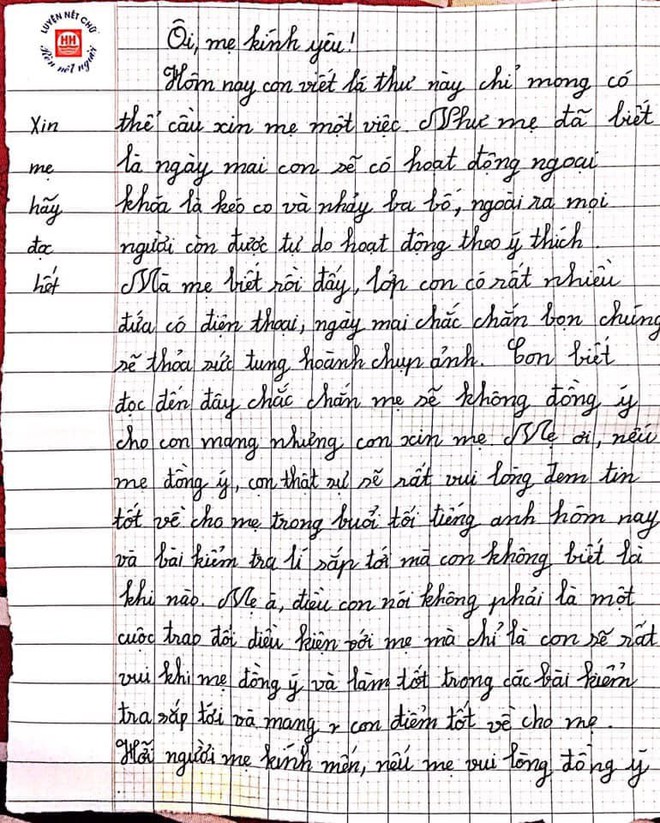 LUYỆN NÉT CHỮ
HH
Rèn nết người
Ôi, mẹ kính yêu!
Hôm nay con viết lá thư này chỉ mong có
Xin thể cầu xin mẹ một việc. Như mẹ đã biết
mẹ là ngày mai con sẽ có hoạt động ngoại
hãy khóa là kéo co và nhảy ba bố, ngoài ra mọi
đọc người còn được tự do hoạt động theo ý thích.
hết Mà mẹ biết rồi đấy, lớp con có rất nhiều
đứa có điện thoại, ngày mai chắc chắn bọn chúng
sẽ thỏa sức tung hoành chụp ảnh. Con biết
đọc đến đây chắc chắn mẹ sẽ không đồng ý
cho con mang nhưng con xin mẹ. Mẹ ơi, nếu
mẹ đồng ý, con thật sự sẽ rất vui lòng đem tin
tốt về cho mẹ trong buổi tối tiếng anh hôm nay
và bài kiểm tra lí sắp tới mà con không biết là
khi nào. Mẹ à, điều con nói không phải là một
cuộc trao đổi điều kiện với mẹ mà chỉ là con sẽ rất
vui khi mẹ đồng ý và làm tốt trong các bài kiểm
tra sắp tới và mang r con điểm tốt về cho mẹ.
Hỡi người mẹ kính mến, nếu mẹ vui lòng đồng ý